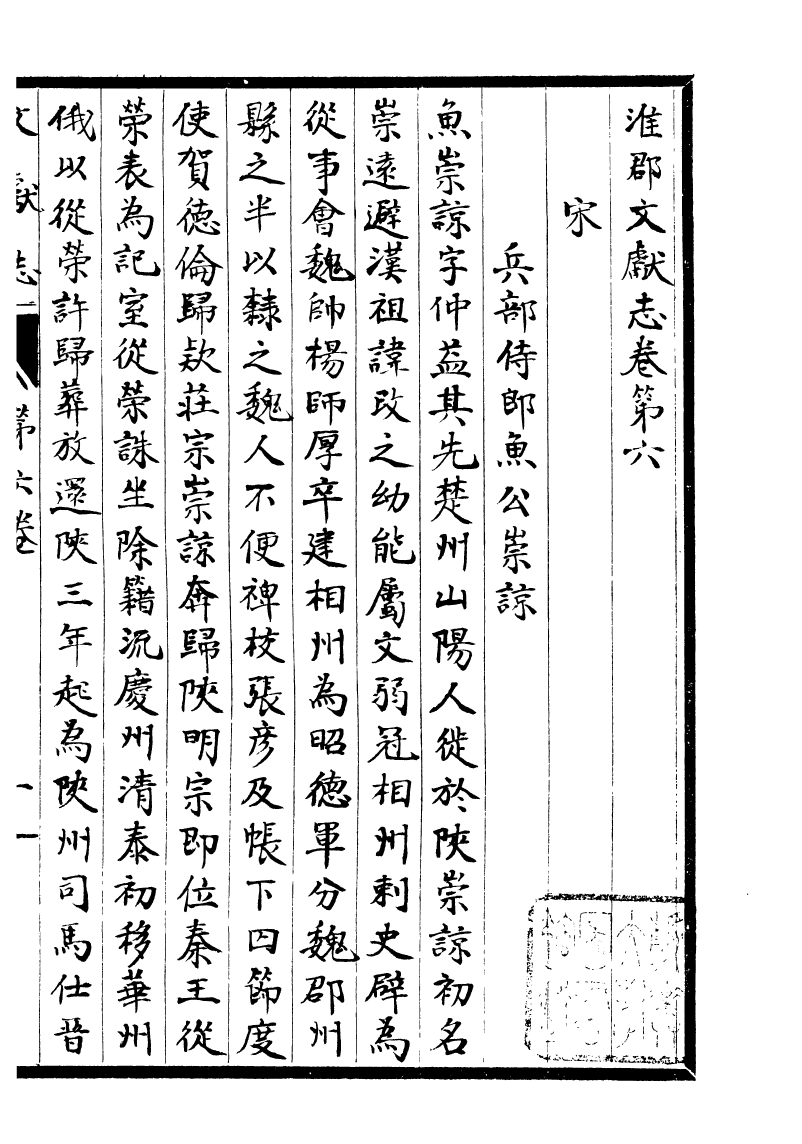 淮郡文獻志卷第六
宋
兵部侍郎魚公崇諒
魚崇諒字仲益其先楚州山陽人徙於陝崇諒初名
崇遠避漢祖諱改之幼能屬文弱冠相州刺史辟為
從事會魏帥楊師厚卒建相州為昭德軍分魏郡州
縣之半以隸之魏人不便裨校張彦及帳下囚節度
使賀徳倫歸款莊宗崇諒奔歸陝明宗即位秦王從
榮表為記室從榮誅坐除籍流慶州清泰初移華州
俄以從榮許歸葬放還陝三年起為陝州司馬仕晉
文獻志 第六卷 一